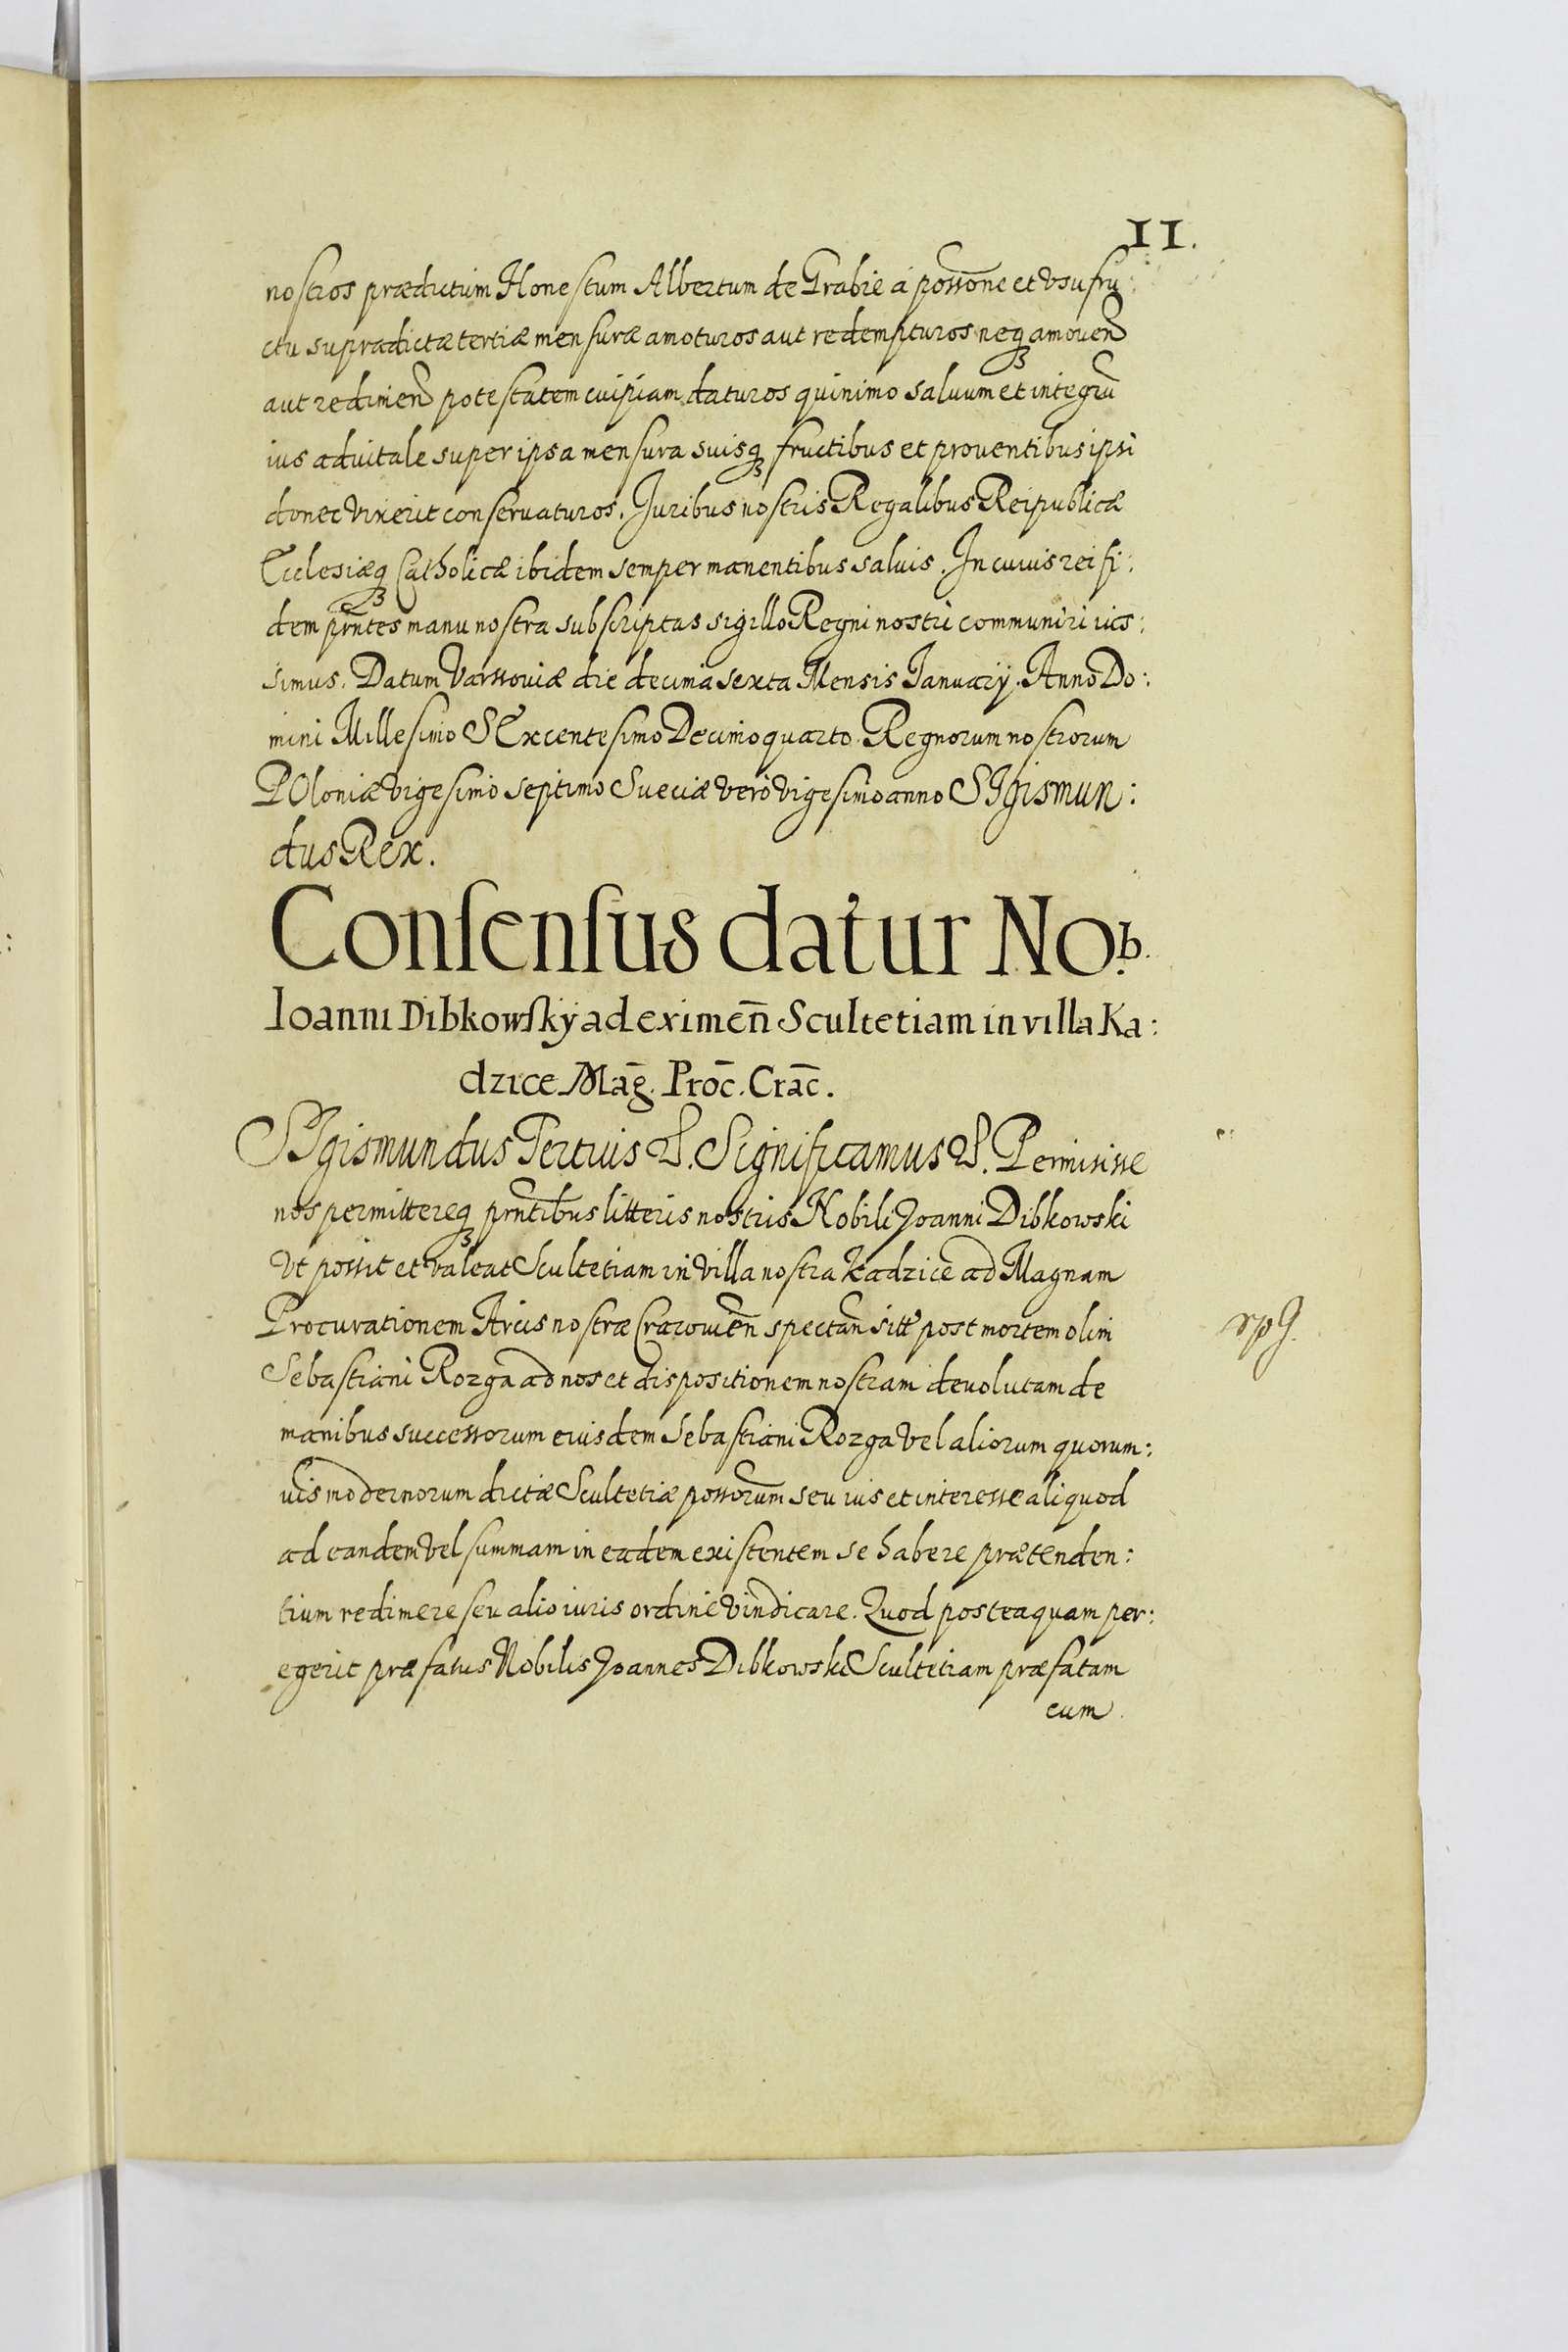 11.
nostros prædictum Honestum Albertum de Grabie á possone et vsufru:
ctu supradictæ tertiæ mensuræ amoturos aut redempturos neqꝫ amouen
aut redimen potestatem cuipiam daturos quinimo saluum et integrū
ius aduitale super ipsa mensura suisqꝫ fructibus et prouentibus ipsi
donec vixerit conseruaturos. Juribus nostris Regalibus Reipublicæ
Ecclesiæqꝫ Catholicæ ibidem semper manentibus saluis. In cuius rei fi:
dem prntes manu nostra subscriptas sigillo Regni nostri communiri ius:
simus. Datum Varssouiæ die decima sexta Mensis Ianuarÿ. Anno Do:
mini Millesimo SExcentesimo Decimoquarto. Regnorum nostrorum
POloniæ vigesimo septimo Sueciæ vero vigesimo anno SIgismun:
dus Rex.
Consensus datur NOb.
Ioanni Dibkowskÿ ad eximen̄ Scultetiam in villa Ka:
dzice Māg. Proc̄. Crac̄.
SIgismundus Tertius &. Significamus &. Permisisse
nos permittereqꝫ prntibus litteris nostris Nobili Joanni Dibkowski
Vt possit et valeat Scultetiam in villa nostra Kadzice ad Magnam
Procurationem Arcis nostræ Cracouien spectan sitt post mortem olim
Sebastiani Rozga ad nos et dispositionem nostram deuolutam de
manibus successorum eiusdem Sebastiani Rozga vel aliorum quorum:
uis modernorum dictæ Scultetiæ possorum seu ius et interesse aliquod
ad eandem vel summam in eadem existentem se habere prætenden:
tium redimere seu alio iuris ordine vindicare. Quod posteaquam per:
egerit præfatus Nobilis Joannes Dibkowski Scultetiam præfatam
cum